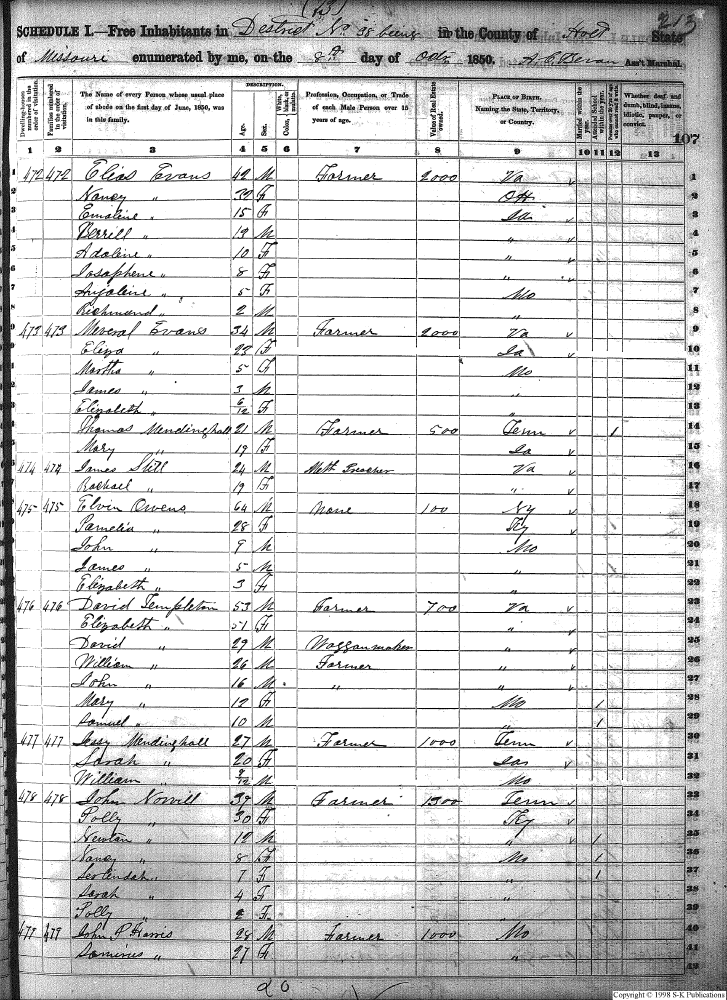 (13)
213
SCHEDULE I.—Free Inhabitants in District No 38 being in the County of Holt State
of Missouri enumerated by me, on the 8th day of Octr 1850. A. C. Bevan Ass't Marshal.
Dwelling-houses numbered in the order of visitation.
Families numbered in the order of visitation.
The Name of every Person whose usual place of abode on the first day of June, 1850, was in this family.
DESCRIPTION.
Age.
Sex.
Color, White, black, or mulatto.
Profession, Occupation, or Trade of each Male Person over 15 years of age.
Value of Real Estate owned.
PLACE OF BIRTH. Naming the State, Territory, or Country.
Married within the year.
Attended School within the year.
Whether deaf and dumb, blind, insane, idiotic, pauper, or convict.
107
1 2 3 4 5 6 7 8 9 10 11 12 13
1 472 472 Elias Evans 42 M Farmer 2000 Va 1
2 Nancy " 39 F 2
3 Emaline " 15 F 3
4 " 13 M " 4
5 Adaline " 10 F " 5
6 Josaphene " 8 F " 6
7 Anjaline " 5 F Mo 7
8 Richmond " 2 M " 8
9 473 473 Evans 34 M Farmer 2000 Va 9
10 Eliza " 23 F Ia 10
11 Martha " 5 F Mo 11
12 James " 3 M " 12
13 Elizabeth " 6/12 F " 13
14 Thomas Mendinghall 21 M Farmer 500 Tenn 1 14
15 Mary " 19 F Ia 15
16 474 474 James Still 24 M Meth Preacher Va 16
17 Rachael " 19 F " 17
18 475 475 Elvin Owens 64 M None 100 18
19 Pamelia " 28 F Ky 19
20 John " 9 M Mo 20
21 James " 5 M " 21
22 Elizabeth " 3 F " 22
23 476 476 David Templeton 53 M Farmer 700 Va 23
24 Elizabeth " 51 F " 24
25 David " 29 M Waggonmaker " 25
26 William " 26 M Farmer " 26
27 John " 16 M " " 27
28 Mary " 12 F Mo 1 28
29 Samuel " 10 M " 1 29
30 477 477 Mendinghall 27 M Farmer 1000 Tenn 30
31 Sarah " 20 F 31
32 William " 9/12 M Mo 32
33 478 478 John Norvill 39 M Farmer 1300 Tenn 33
34 Polly " 30 F Ky 34
35 Newton " 12 M " 1 35
36 Nancy " 8 F Mo 1 36
37 " 7 F " 1 37
38 Sarah " 4 F 38
39 Polly " 2 F 39
40 479 John P Harris 28 M Farmer 1000 Mo 40
41 " 27 F " 41
42 42
20
Copyright © 1998 S-K Publications